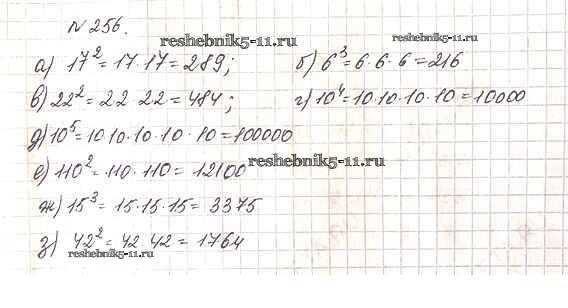 № 256.
reshebnik5-11.ru reshebnik5-11.ru
а) 17² = 17 · 17 = 289; б) 6³ = 6 · 6 · 6 = 216
в) 22² = 22 · 22 = 484; г) 10⁴ = 10 · 10 · 10 · 10 = 10000
д) 10⁵ = 10 10 · 10 · 10 · 10 = 100000
е) 110² = 110 · 110 = 12100 reshebnik5-11.ru
ж) 15³ = 15 · 15 · 15 = 3375
з) 42² = 42 · 42 = 1764
reshebnik5-11.ru